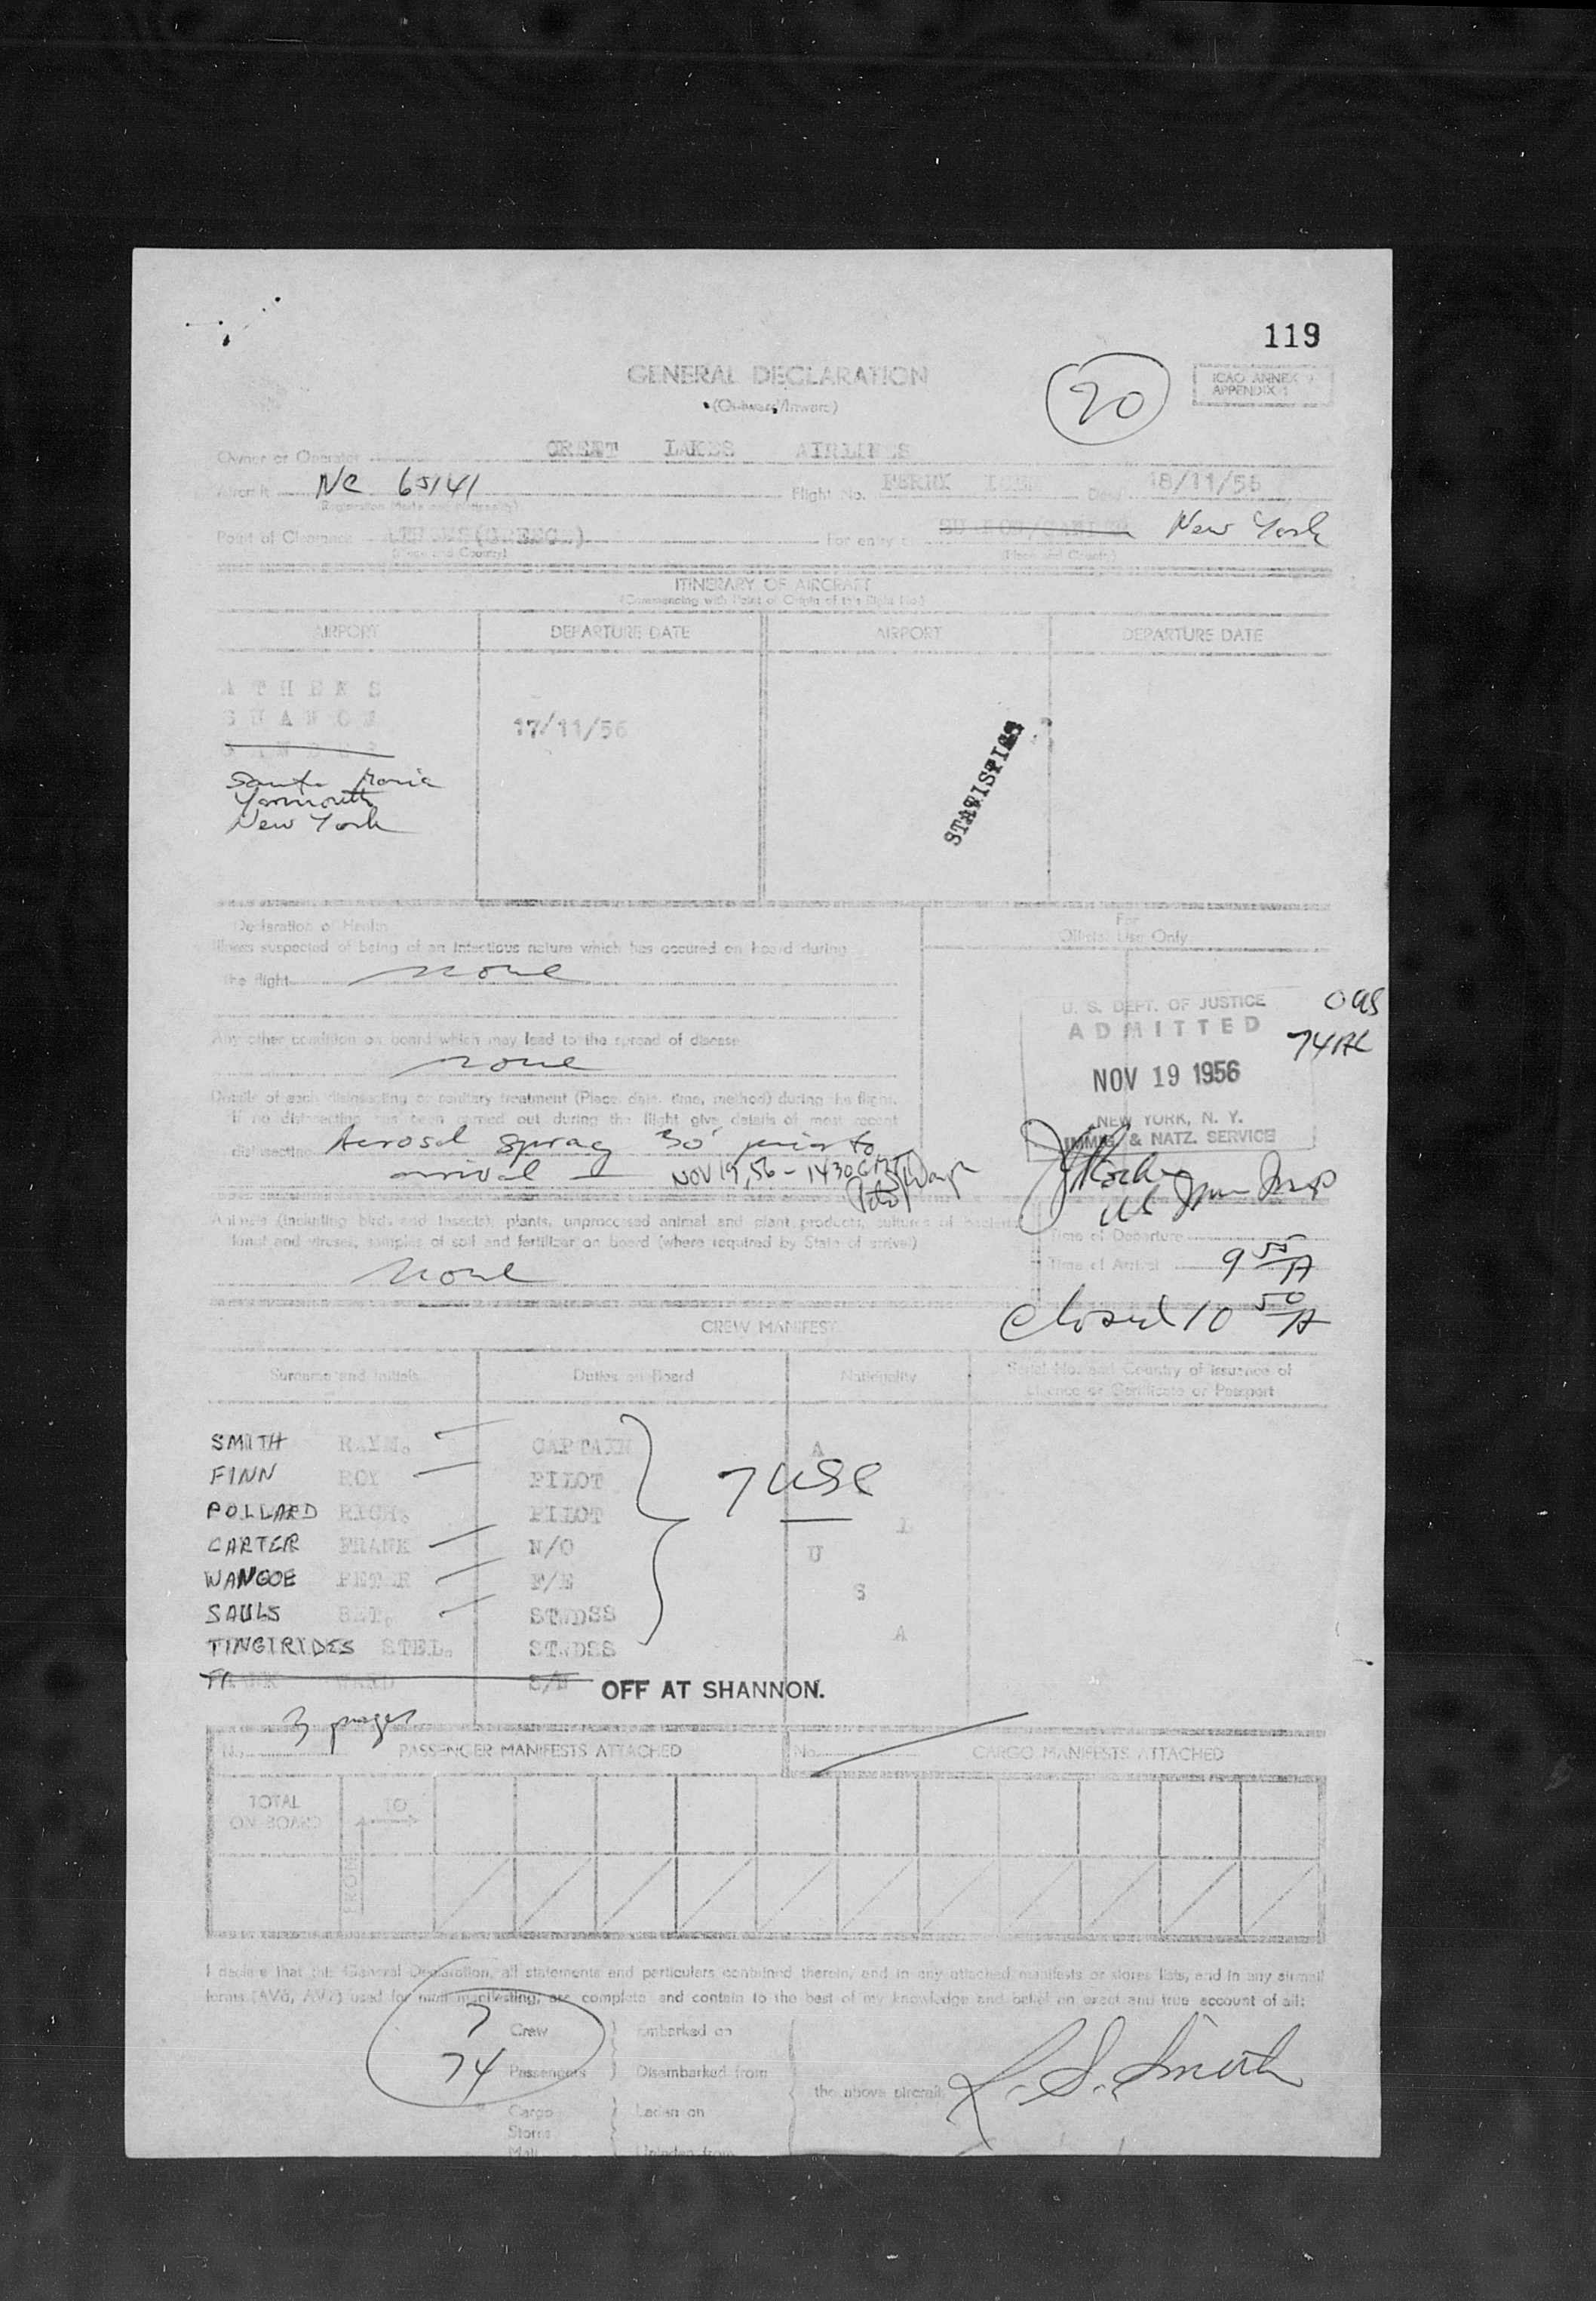 119
GENERAL DECLARATION
(Outward/Inward)
20
ICAO ANNEX 9
APPENDIX 1
Owner or Operator GREAT LAKES AIRLINES
Aircraft NC 65141 Flight No. FERRY Date 18/11/56
(Registration Marks and Nationality)
Point of Clearance ATHENS(GREECE) For entry at New York
(Place and Country) (Place and Country)
ITINERARY OF AIRCRAFT
(Commencing with Point of Origin of this flight No.)
AIRPORT DEPARTURE DATE AIRPORT DEPARTURE DATE
ATHENS
17/11/56
Santa Maria
Yarmouth
New York
STATISTICS
Declaration of Health
Illness suspected of being of an infectious nature which has occured on board during
the flight none
Any other condition on board which may lead to the spread of disease
none
Details of each disinsecting or sanitary treatment (Place, date, time, method) during the flight.
If no disinsecting has been carried out during the flight give details of most recent
disinsecting Aerosol spray 30' prior to
arrival NOV 19, 56 - 1430 GMT
Animals (including birds and insects), plants, unprocessed animal and plant products, cultures of bacteria
and viruses, samples of soil and fertilizer on board (where required by State of arrival)
none
For
Official Use Only
U. S. DEPT. OF JUSTICE
ADMITTED
NOV 19 1956
NEW YORK, N. Y.
IMMIG. & NATZ. SERVICE
74 AL
Time of Departure
Time of Arrival 9 55 A
Closed 10 50 A
CREW MANIFEST
Surname and Initials Duties on Board Nationality Serial No. and Country of issuance of
Licence or Certificate or Passport
SMITH RAYM. CAPTAIN A
FINN ROY PILOT
7 USC
POLLARD RICH. PILOT L
CARTER FRANK N/O U
WANGOE PETER F/E S
SAULS BET. STWDSS
TINGIRIDES STEL. STWDSS A
OFF AT SHANNON.
3 pages
No. PASSENGER MANIFESTS ATTACHED No. CARGO MANIFESTS ATTACHED
TOTAL
ON BOARD
TO
FROM
I declare that this General Declaration, all statements and particulars contained therein, and in any attached manifests or stores lists, and in any airmail
forms (AV6, AV7) used for mail manifesting, are complete and contain to the best of my knowledge and belief an exact and true account of all:
7 Crew embarked on
74 Passengers Disembarked from
the above aircraft
Cargo Laden on
Stores
Mail Unladen from